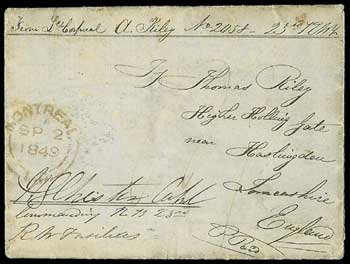 From Lce Corporal A. Riley No 2058 - 23rd
To Thomas Riley
Higher Holling Gate
near
Haslingden
Lancashire
England
MONTREAL
SP 2
1849
Commanding R B 23rd
R W Fusiliers
P Paid